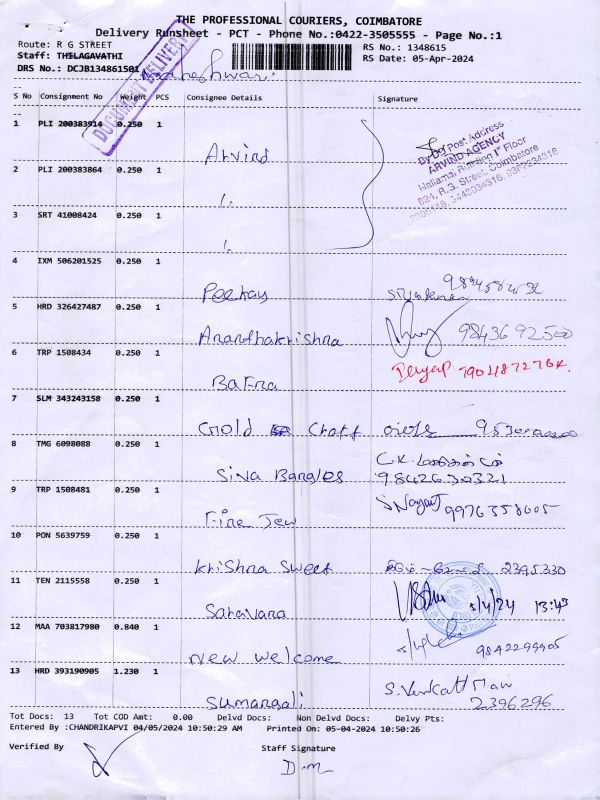 THE PROFESSIONAL COURIERS, COIMBATORE
Delivery Runsheet - PCT - Phone No.:0422-3505555 - Page No.:1
Route: R G STREET
RS No.: 1348615
Staff: THILAGAVATHI
RS Date: 05-Apr-2024
DRS No.: DCJB134861501
DOCUMENT DELIVERY
S No Consignment No Weight PCS Consignee Details Signature
1 PLI 200383914 0.250 1
Arvind
By DG Post Address
ARVIND AGENCY
1st Floor
824, R.G. Street, Coimbatore
2 PLI 200383864 0.250 1
3 SRT 41008424 0.250 1
4 IXM 506201525 0.250 1
Peekay
5 HRD 326427487 0.250 1
Anandhakrishna
6 TRP 1508434 0.250 1
Bafna
7 SLM 343243158 0.250 1
Gold Craft
8 TMG 6098088 0.250 1
Siva Bangles
9842630321
9 TRP 1508481 0.250 1
Fine Jew
9976358605
10 PON 5639759 0.250 1
Krishna Sweet
2395330
11 TEN 2115558 0.250 1
Saravana
5/4/24 13:43
12 MAA 703817980 0.840 1
New Welcome
9842299905
13 HRD 393190905 1.230 1
Sumangali
2396296
Tot Docs: 13 Tot COD Amt: 0.00 Delvd Docs: Non Delvd Docs: Delvy Pts:
Entered By :CHANDRIKAPVI 04/05/2024 10:50:29 AM Printed On: 05-04-2024 10:50:26
Verified By Staff Signature
D.M